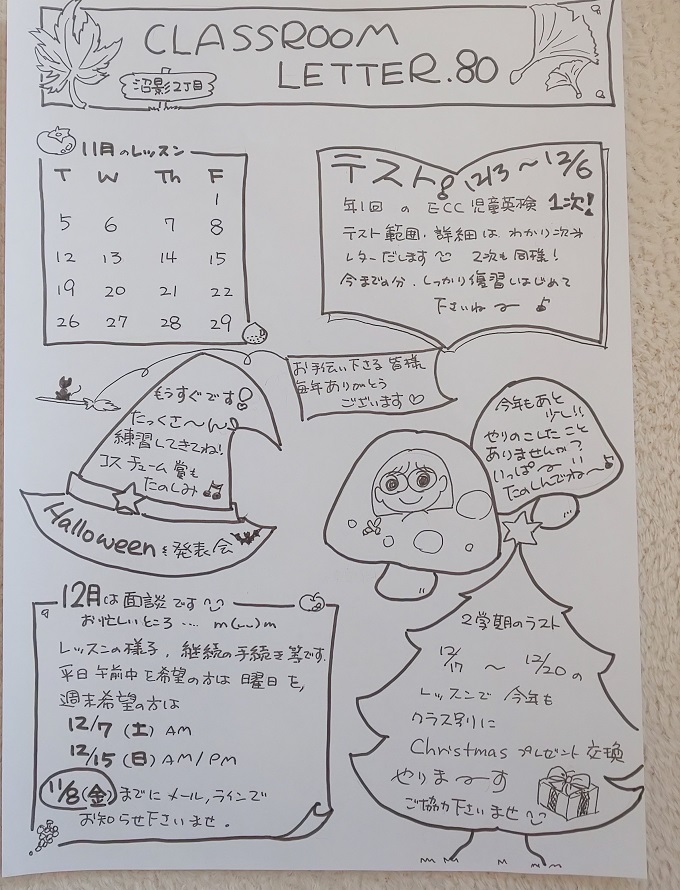 CLASSROOM
LETTER.80
沼影2丁目
11月のレッスン
T W Th F
1
5 6 7 8
12 13 14 15
19 20 21 22
26 27 28 29
テスト 12/3 〜 12/6
年1回 の ECC 児童英検 1次!
テスト範囲、詳細は、わかり次第
レターだします 2次も同様!
今までの分、しっかり復習しはじめて
下さいね〜 ♪
お手伝い下さる皆様
毎年ありがとう
ございます♡
もうすぐです!
たっくさ〜ん
練習してきてね!
コスチューム賞も
たのしみ♫
Halloween&発表会
今年もあと
少し!!
やりのこしたこと
ありませんか?
いっぱ〜い
たのしんでね〜♪
12月は面談です
お忙しいところ…. m(__)m
レッスンの様子、継続の手続き等です.
平日午前中を希望の方は曜日を,
週末希望の方は
12/7 (土) AM
12/15 (日) AM/PM
11/8(金)までにメール,ラインで
お知らせ下さいませ.
2学期のラスト
12/17 〜 12/20の
レッスンで 今年も
クラス別に
Christmas プレゼント交換
やりま〜す
ご協力下さいませ